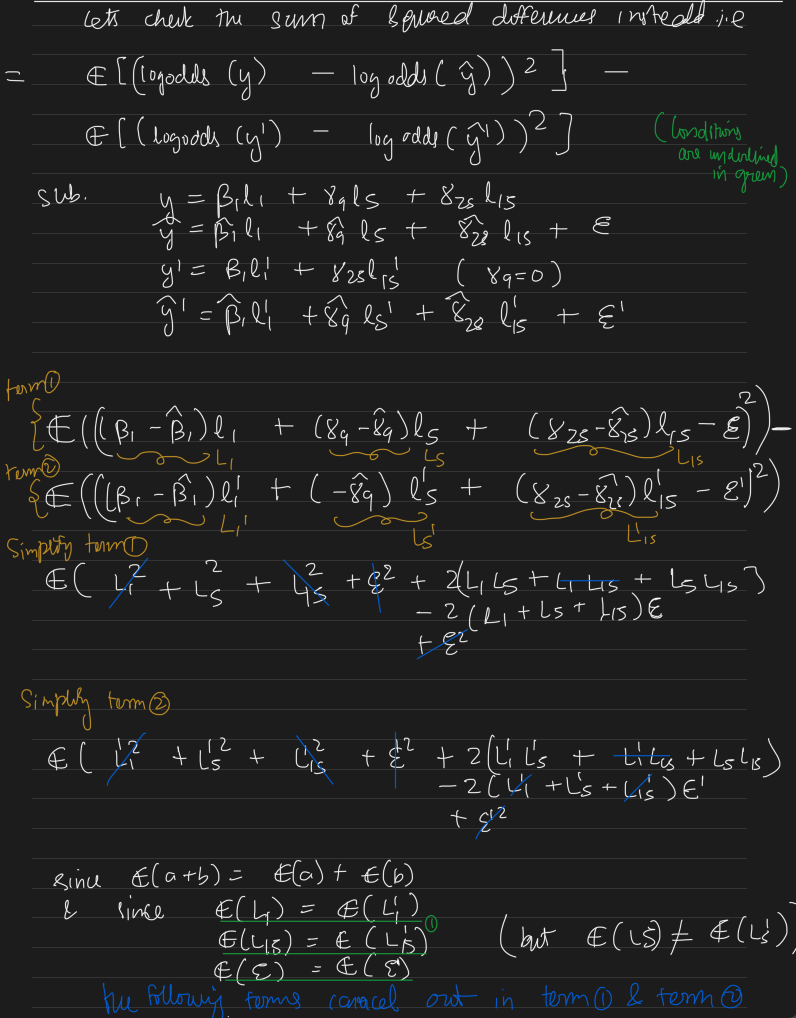 Lets check the sum of squared differences instead i.e
= E[(logodds (y) - log odds (ŷ))²] -
E[(logodds (y') - log odds (ŷ'))²]
(Conditions are underlined in green)
sub. y = β₁l₁ + γ₉l₅ + γ₂₅l₁₅
ŷ = β̂₁l₁ + γ̂₉ l₅ + γ̂₂₈ l₁₅ + ε
y' = β₁l₁' + γ₂₅l₁₅' (γ₉=0)
ŷ' = β̂₁l₁' + γ̂₉ l₅' + γ̂₂₈ l₁₅' + ε'
term①
E(((β₁ - β̂₁)l₁ + (γ₉ - γ̂₉)l₅ + (γ₂₅ - γ̂₂₅)l₁₅ - ε)²) -
L₁ L₅ L₁₅
term②
E(((β₁ - β̂₁)l₁' + (-γ̂₉) l₅' + (γ₂₅ - γ̂₂₈)l₁₅' - ε')²)
L₁' L₅' L₁₅'
Simplify term①
E( L₁² + L₅² + L₁₅² + ε² + 2(L₁L₅ + L₁L₁₅ + L₅L₁₅)
- 2(L₁ + L₅ + L₁₅)ε
+ ε²
Simplify term②
E( L₁'² + L₅'² + L₁₅'² + ε² + 2(L₁'L₅' + L₁'L₁₅ + L₅L₁₅)
- 2(L₁' + L₅' + L₁₅')ε'
+ ε'²
since E(a+b) = E(a) + E(b)
& since E(L₁) = E(L₁')
E(L₁₅) = E(L₁₅') ① (but E(L₅) ≠ E(L₅'))
E(ε) = E(ε')
the following terms cancel out in term① & term②